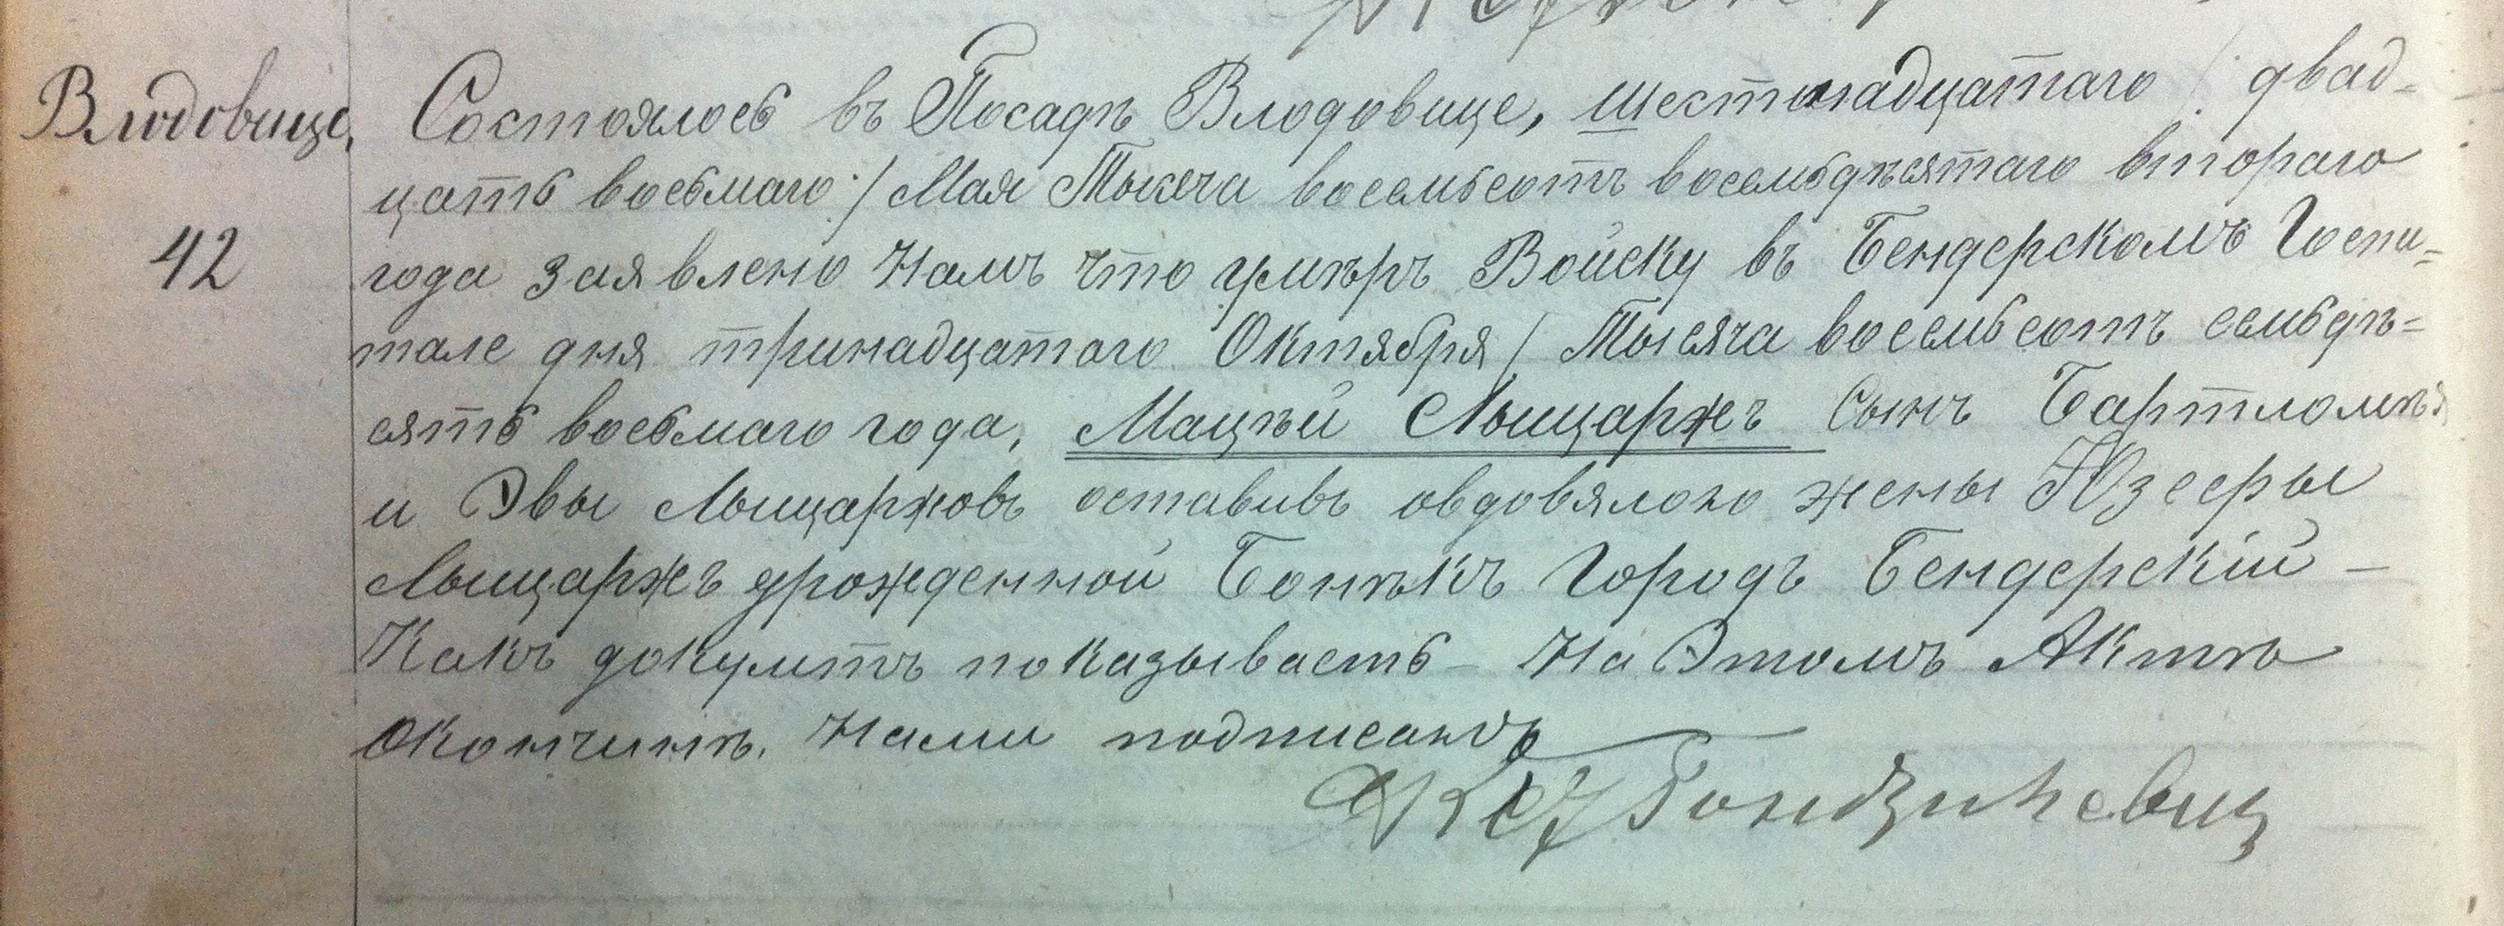 Влодовице,
42
Состоялось въ Посадѣ Влодовице, шестнадцатаго /: двад=
цать восьмаго :/ Мая Тысяча восемьсотъ восемьдѣсятаго втораго
года заявлено Намъ что умѣръ Войску въ Бендерскомъ Госпи=
тале дня тринадцатаго Октября / Тысяча восемьсотъ семьдѣ=
сять восьмаго года, Мацѣй Лыщаржъ сынъ Бартломѣя
и Эвы Лыщаржовъ оставивъ овдовялою жены Юзефы
Лыщаржъ урожденной Бонѣкъ Городъ Бендерскій –
Какъ докумтъ показываеть – На Этомъ Актѣ
Окончинъ. Нами подписанъ